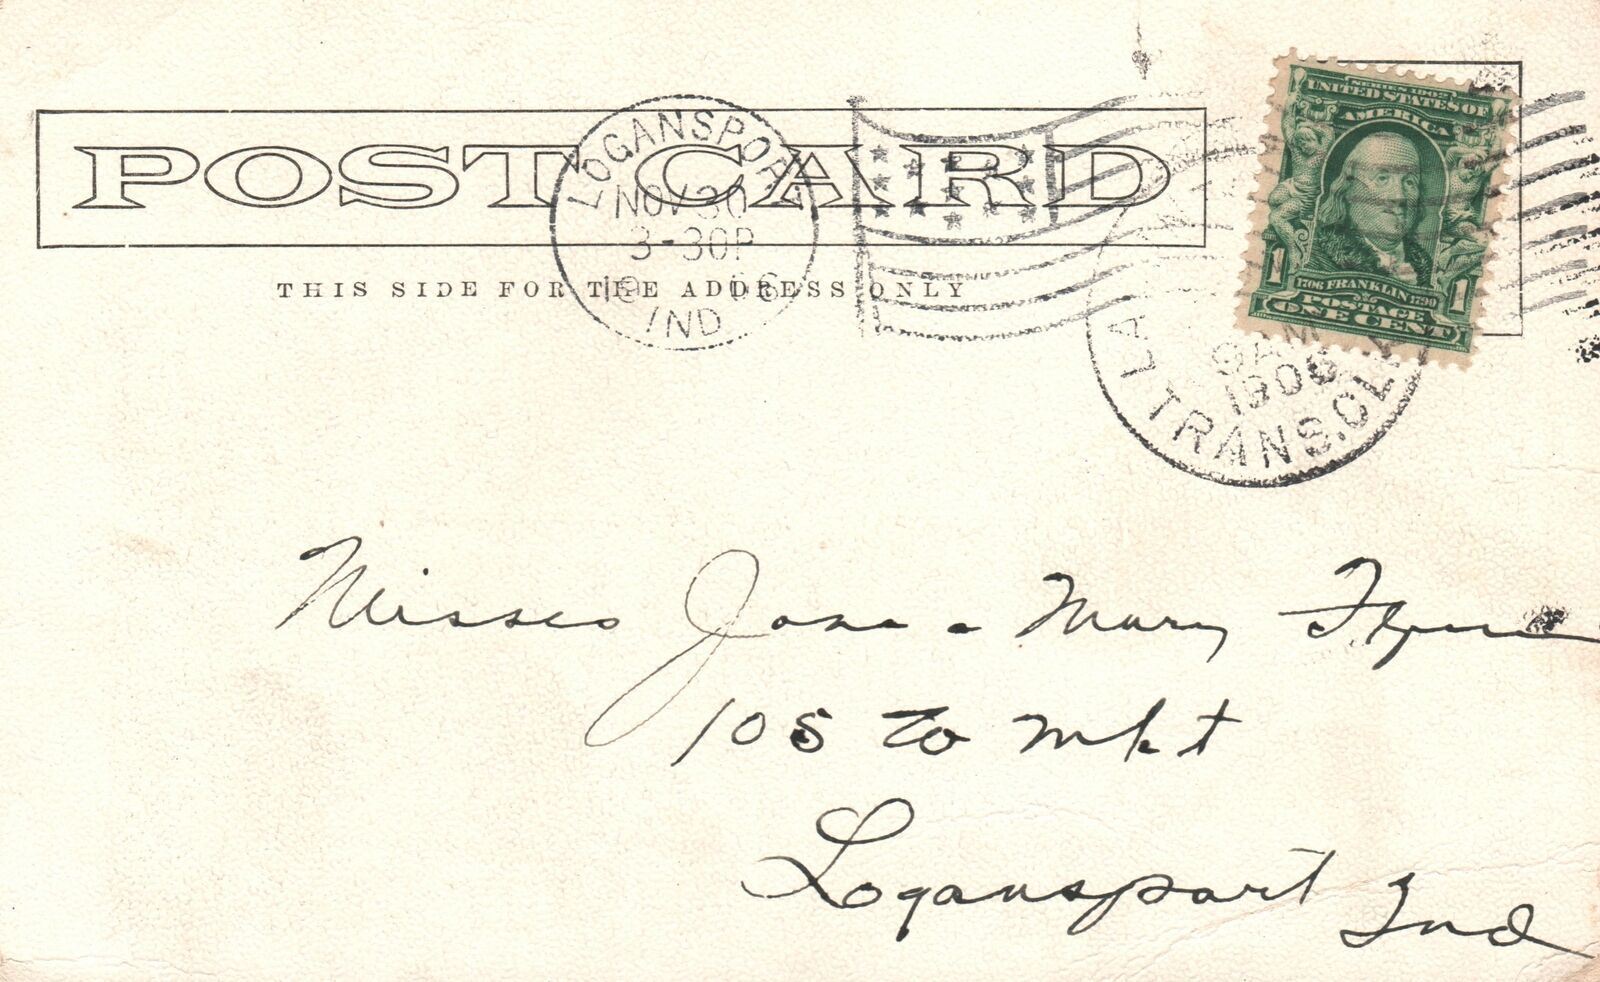 POST CARD
THIS SIDE FOR THE ADDRESS ONLY
LOGANSPORT
NOV 30
3-30P
1906
IND
SERIES 1902
UNITED STATES OF
AMERICA
1706 FRANKLIN 1790
POSTAGE
1 ONE CENT 1
9 AM
1906
TRANS. CLK
Misses Jane & Mary Flynn
105 to Mkt
Logansport Ind